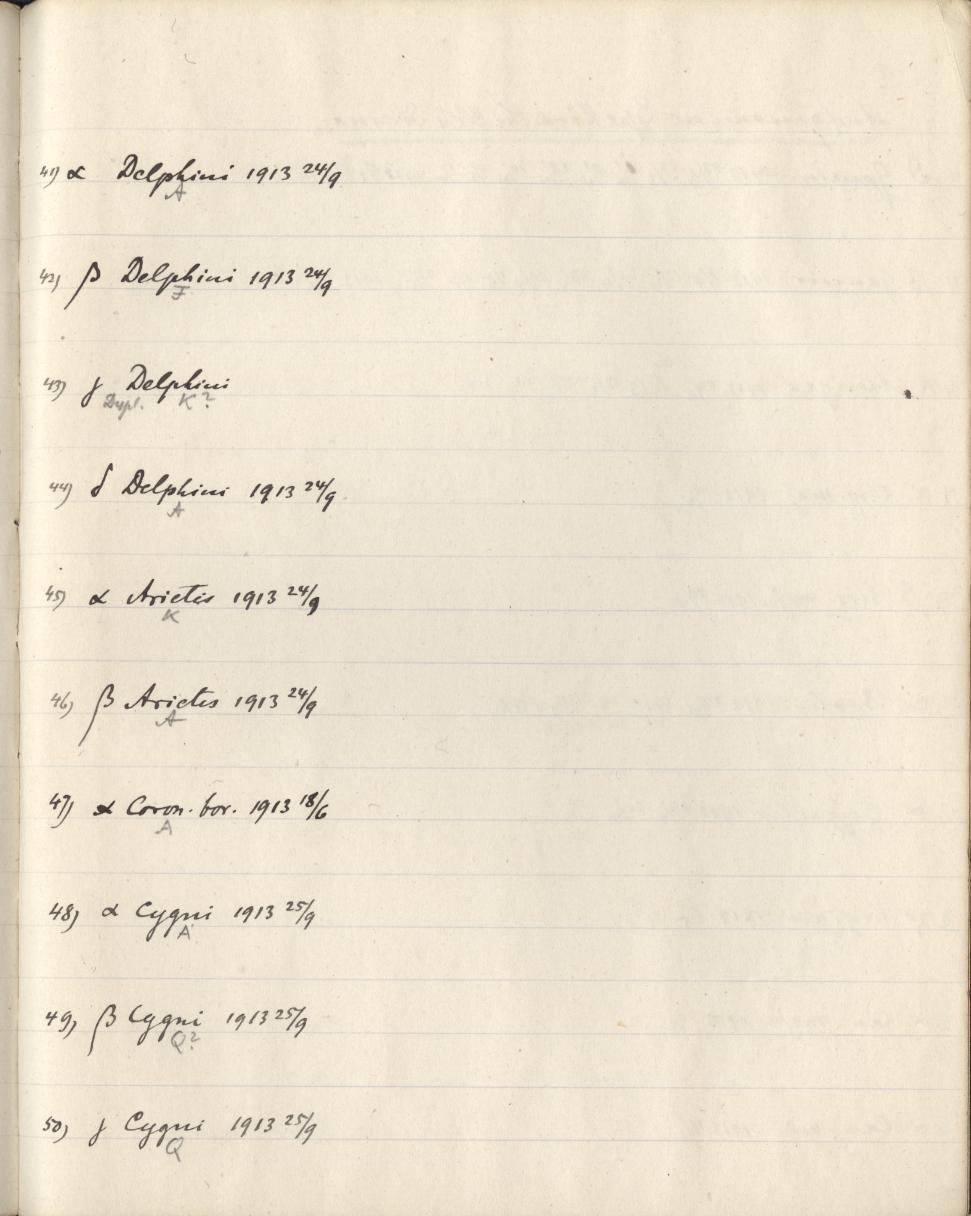 41) α Delphini 1913 24/9
A
42) β Delphini 1913 24/9
F
43) γ Delphini
Dupl. K?
44) δ Delphini 1913 24/9
A
45) α Arietis 1913 24/9
K
46) β Arietis 1913 24/9
A
47) α Coron. bor. 1913 18/6
A
48) α Cygni 1913 25/9
A
49) β Cygni 1913 25/9
Q?
50) γ Cygni 1913 25/9
Q